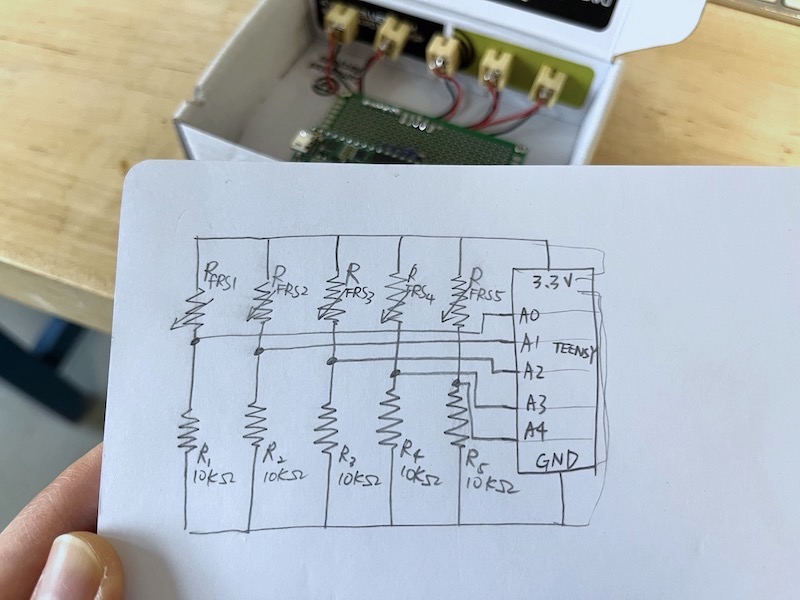 R FRS1
R FRS2
R FRS3
R FRS4
R FRS5
3.3V
A0
A1
TEENSY
A2
A3
A4
GND
R1
10KΩ
R2
10KΩ
R3
10KΩ
R4
10KΩ
R5
10KΩ